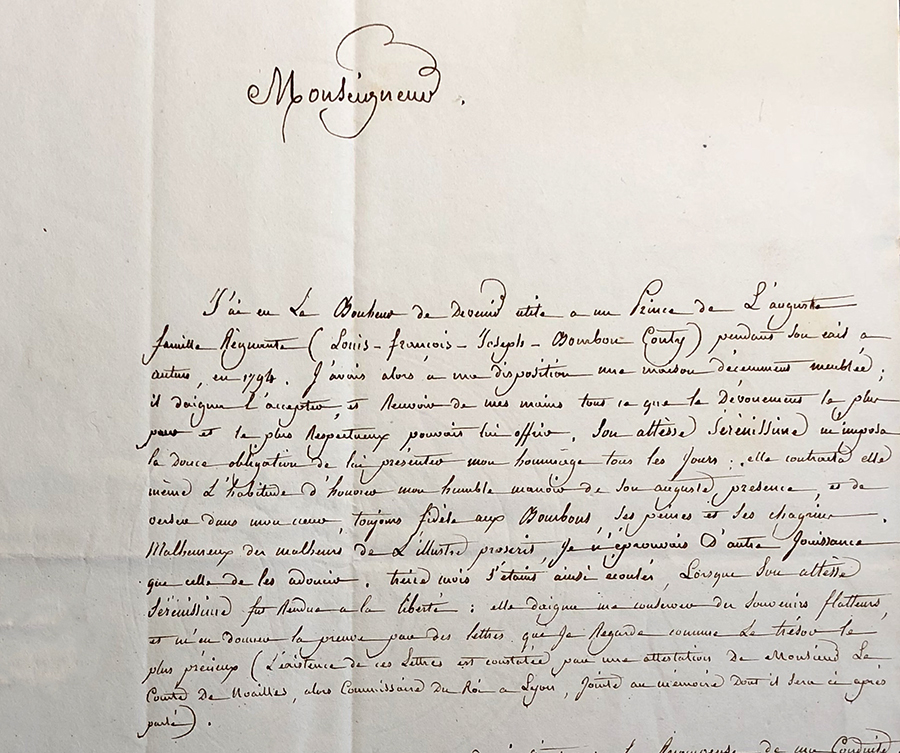 Monseigneur.
J'ai eu Le Bonheur de Devenir utile a un Prince de L'auguste
famille Régnante (Louis-françois-Joseph-Bourbon Conty) pendant son exil a
autun, en 1794. J'avais alors a ma disposition une maison décemment meublée;
il daigna l'accepter, et Recevoir de mes mains tous ce que le Dévouement le plus
pur et le plus Respectueux pouvait lui offrir. Son altèsse Sérénissime m'imposa
la douce obligation de lui présenter mon hommage tous les Jours: elle contracta elle
même L'habitude d'honorer mon humble manoir de son auguste presence, et de
verser dans mon cœur, toujours fidèle aux Bourbons, ses peines et ses chagrins.
Malheureux des malheurs de L'illustre proscrit, Je n'éprouvois D'autre Jouissance
que celle de les adoucir. treize mois s'étaint ainsi ecoulés, Lorsque Son altèsse
Sérénissime fut Rendue a la liberté: elle daigna me conserver des souvenirs flatteurs,
et m'en donner la preuve par des lettres que Je Regarde comme Le trésor le
plus précieux (L'éxistence de ces Lettres est constatée par une attestation de Monsieur Le
Comte De Noailles, alors Commissaire Du Roi a Lyon, Jointe au memoire Dont il sera ci après
parlé).
de ma Conduite